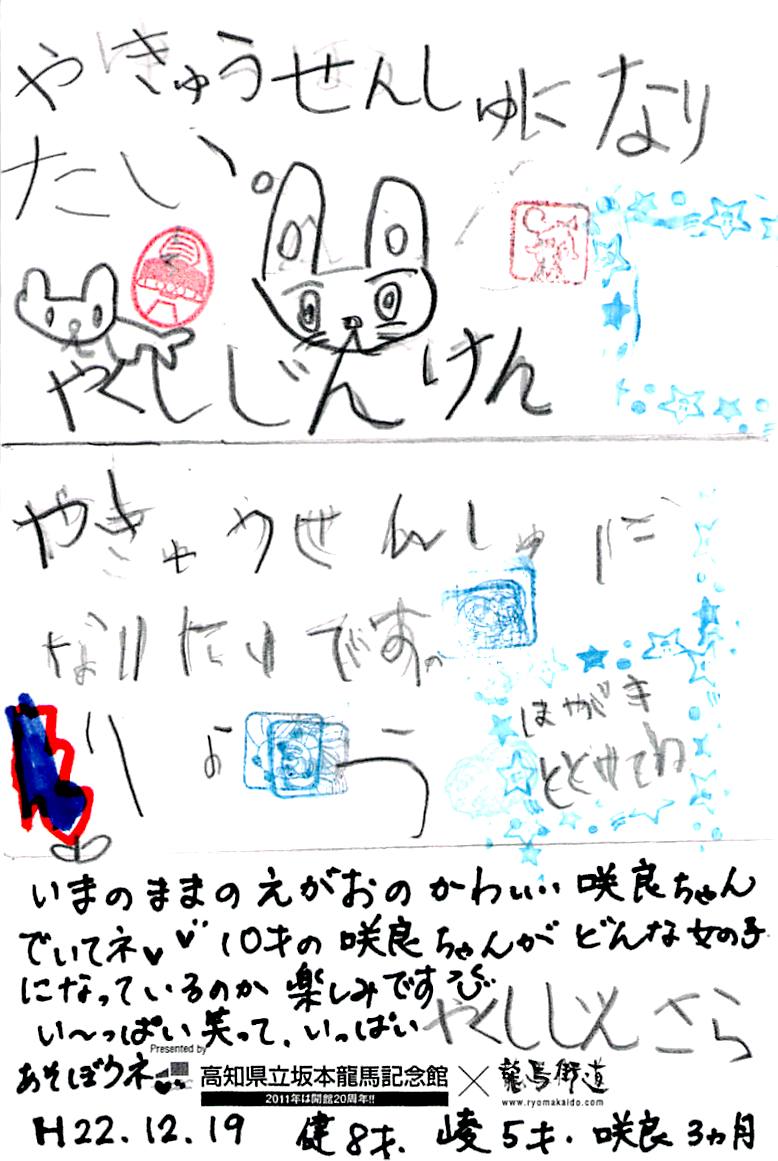 やきゅうせんしゅになり
たい。
やくしじんけん
やきゅうせんしゅに
なりたいです。
りょう
はやがき
とどけてね
いまのままのえがおのかわいい咲良ちゃん
でいてネ♥♥ 10才の咲良ちゃんがどんな女の子
になっているのか楽しみです
い〜っぱい笑って、いっぱい
やくしじん さら
あそぼうネ
Presented by
高知県立坂本龍馬記念館 × 龍馬街道
2011年は開館20周年!!
www.ryomakaido.com
H22.12.19 健8才. 崚5才. 咲良3ヵ月